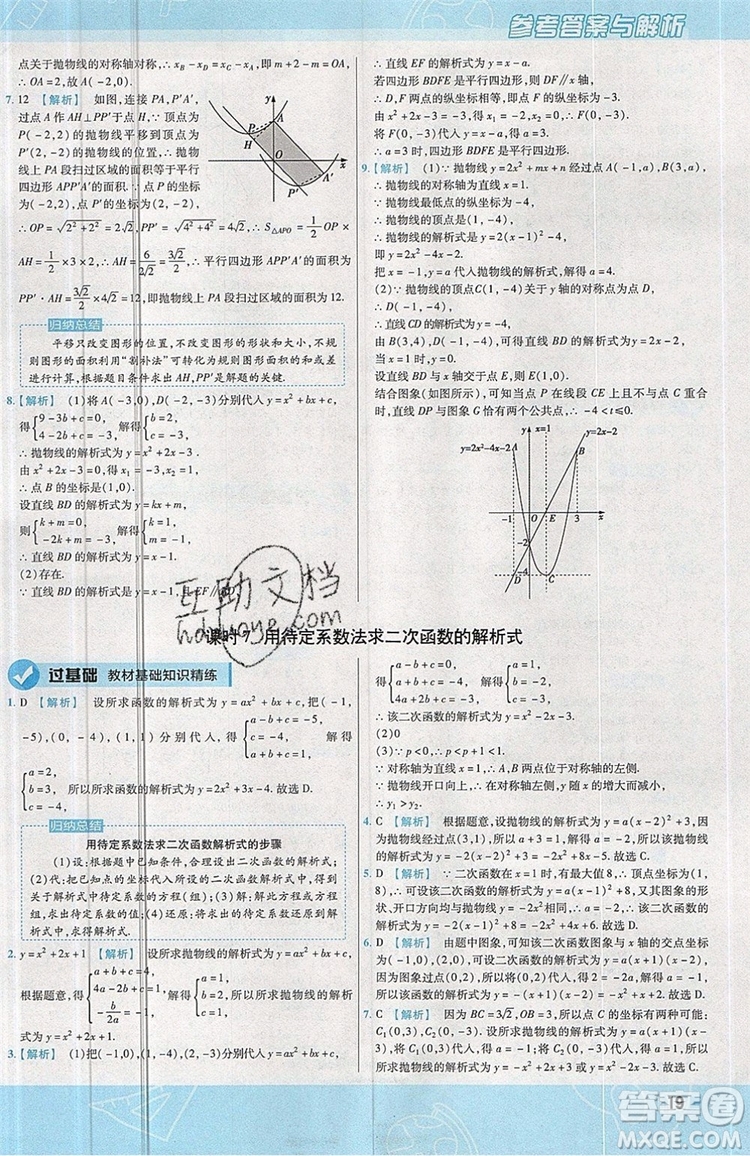 参考答案与解析
点关于抛物线的对称轴对称,∴
∴ OA=2.∴ A(-2,0).
7.12 【解析】 如图,连接 PA,P'A',
过点 A 作 AH⊥PP'于点 H,∵ 顶点为
P(-2,2)的抛物线平移到顶点为
P'(2,-2)的抛物线的位置,∴ 抛物
线上 PA 段扫过区域的面积为平行
四边形 APP'A'的面积.∵ P 点的坐标
为(-2,2),P'点的坐标为(2,-2),
∴ OP=√(2²+2²)=2√2,PP'=√(4²+4²)=4√2,∴ S△APO=1/2 OP×
AH=1/2×2√2×AH=3,∴ AH=6/(2√2)=3√2/2,∴ 平行四边形 APP'A'的面积=
PP'·AH=3√2/2×4√2=12.∴ 抛物线上 PA 段扫过区域的面积为 12.
归纳总结
平移只改变图形的位置,不改变图形的形状和大小,不规
则图形的面积利用“割补法”可转化为规则图形的面积的和或差
进行计算,根据题目条件求出 AH,PP'是解题的关键.
8.【解析】 (1)将 A(-3,0),D(-2,-3)分别代入 y=x²+bx+c,
得{9-3b+c=0, 4-2b+c=-3, 解得{b=2, c=-3,
∴ 抛物线的解析式为 y=x²+2x-3.
由 x²+2x-3=0,得 x₁=-3,x₂=1,
∴ 点 B 的坐标为(1,0).
设直线 BD 的解析式为 y=kx+m,
则{k+m=0, -2k+m=-3, 解得{k=1, m=-1,
∴ 直线 BD 的解析式为 y=x-1.
(2)存在.
∵ 直线 BD 的解析式为 y=x-1,且 EF∥BD,
∴ 直线 EF 的解析式为 y=x-a.
若四边形 BDFE 是平行四边形,则 DF∥x 轴,
∴ D,F 两点的纵坐标相等,即点 F 的纵坐标为-3.
由 x²+2x-3=-3,得 x₁=0,x₂=-2,∴ F(0,-3).
将 F(0,-3)代入 y=x-a,得-3=0-a,解得 a=3.
∴ a=3 时,四边形 BDFE 是平行四边形.
9.【解析】 (1)∵ 抛物线 y=2x²+mx+n 经过点 A(-1,a),B(3,a),
∴ 抛物线的对称轴为直线 x=1.
∵ 抛物线最低点的纵坐标为-4,
∴ 抛物线的顶点是(1,-4).
∴ 抛物线的解析式是 y=2(x-1)²-4,
即 y=2x²-4x-2.
把 x=-1 代入抛物线的解析式,得 a=4.
(2)∵ 抛物线顶点C(1,-4)关于y轴的对称点为点D,∴D(-1,-4).
∴ 直线CD的解析式为 y=-4.
由 B(3,4),D(-1,-4),求得直线 BD 的解析式为 y=2x-2,
设直线 BD 与 x 轴交于点 E,则 E(1,0).
结合图象(如图)可知,当点 P 在线段 CE 上且不与点 C 重合
时,直线 DP 与图象 G 恰有两个公共点,∴ -4<t≤0.
y=2x²-4x-2 x=1 y=2x-2
课时 7 用待定系数法求二次函数的解析式
过基础 教材基础知识精练
1.D 【解析】 设所求函数的解析式为 y=ax²+bx+c,把(-1,
-5),(0,-4),(1,1)分别代入,得{a-b+c=-5, c=-4, a+b+c=1, 解得
{a=2, b=3, c=-4, ∴ 所求的函数的解析式为 y=2x²+3x-4.故选 D.
归纳总结
用待定系数法求二次函数解析式的步骤
(1)设:根据已知条件,合理设出二次函数的解析式;
(2)代:把已知点的坐标代入所设的二次函数的解析式中,得到
关于解析式中待定系数的方程(组);(3)解:解此方程或方程
组,求出待定系数的值;(4)还原:将求出的待定系数还原到解
析式中.
2.y=x²+2x+1 【解析】 设所求抛物线的解析式为 y=ax²+bx+
c,根据题意,得{a+b+c=4, 4a-2b+c=1, -b/2a=-1, 解得{a=1, b=2, c=1, 所以抛物线的解析
式为 y=x²+2x+1.
3.【解析】 (1)把(-1,0),(0,-3),(2,-3)分别代入 y=ax²+bx+c,
得{a-b+c=0, c=-3, 4a+2b+c=-3, 解得{a=1, b=-2, c=-3,
∴ 该二次函数的解析式为 y=x²-2x-3.
(2)0
(3)∵ p<1,∴ p-2<p<1,
∵ 对称轴为直线 x=1,∴ A,B 两点位于对称轴的左侧.
又∵ 抛物线开口向上,∴ 在对称轴的左侧,y 随 x 的增大而减小,
∴ y₁>y₂.
4.C 【解析】 根据题意,设抛物线的解析式为 y=a(x-2)²+3,
因为抛物线经过点(3,1),所以 a+3=1,解得 a=-2,所以抛物线
的解析式为 y=-2(x-2)²+3=-2x²+8x-5.故选 C.
5.D 【解析】 ∵ 二次函数在 x=1 时,有最大值 8,∴ 抛物线的
顶点是(1,8),∴ 可设此二次函数的解析式为 y=a(x-1)²+
8,又∵ 其图象的形状、开口方向与抛物线 y=-2x²相同,∴ a=
-2,∴ y=-2(x-1)²+8=-2x²+4x+6.故选 D.
6.D 【解析】 由题中图象,可知该二次函数图象与 x 轴的交点坐标
为(-1,0),(2,0).设所求函数解析式为 y=a(x+1)(x-2),把
点(0,2)代入,得 2=a(0+1)(0-2),解得 a=-1,
所以该函数的解析式为 y=-(x+1)(x-2)=-x²+x+2.故选 D.
7.C 【解析】 因为 BC=3√2,OB=3,所以点 C 的坐标有两种可能:
C₁(0,3),C₂(0,-3).
所以所求抛物线的解析式为
19
互助文档
hdwoye.com
答案圈
MXQE.COM